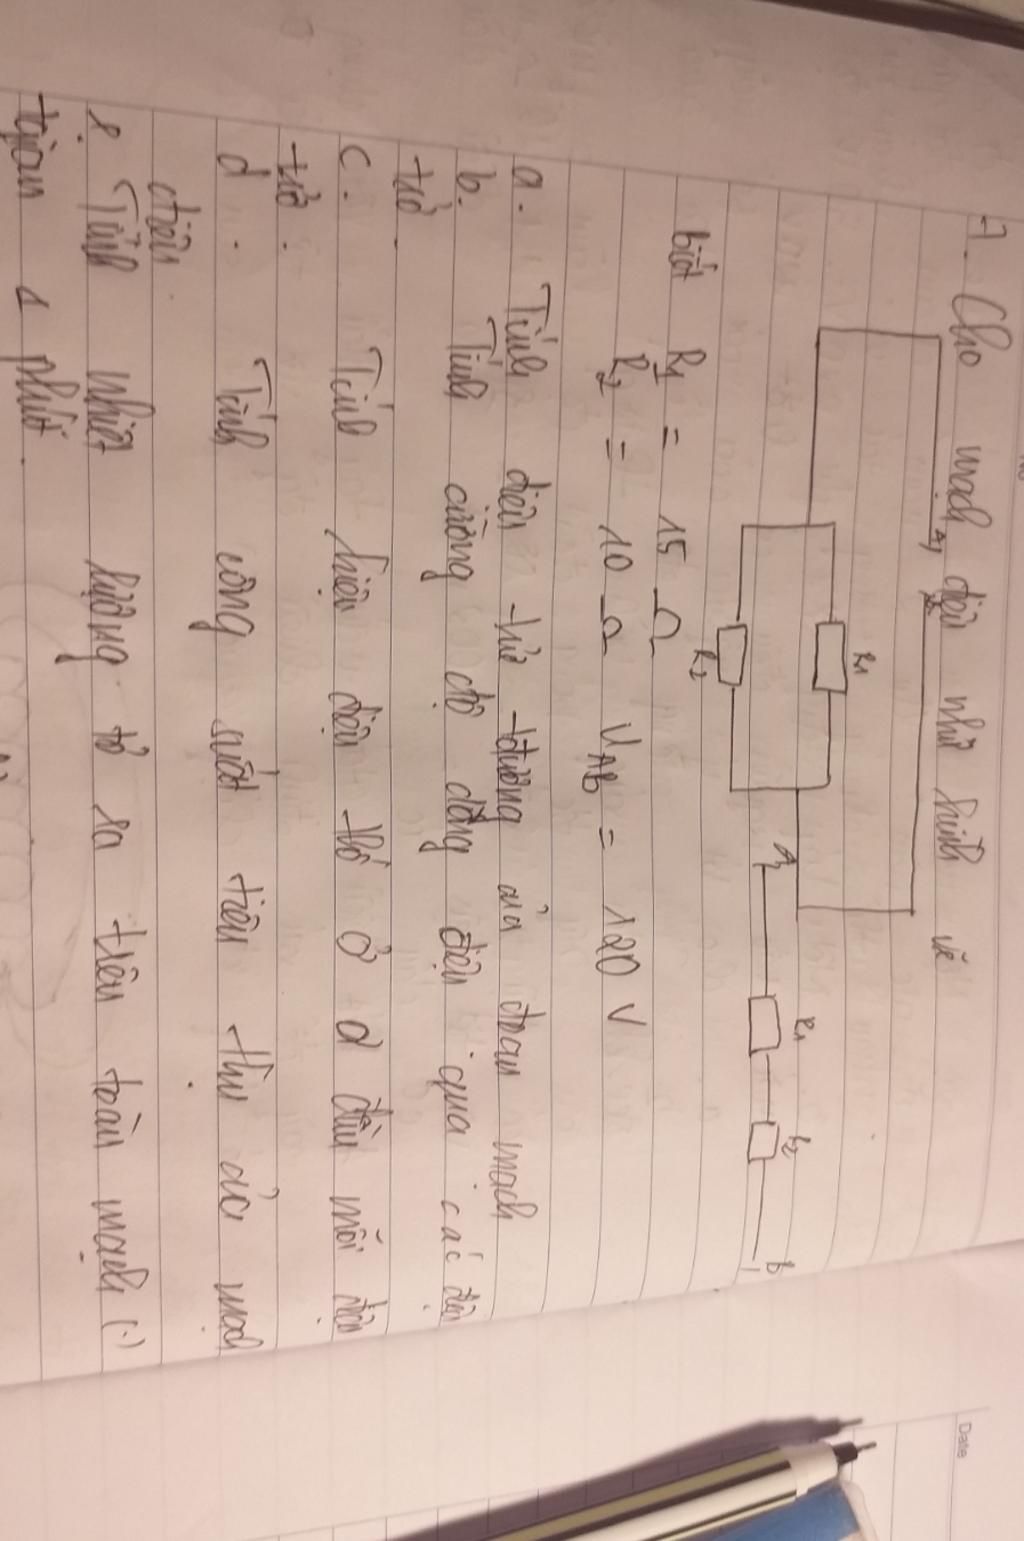 1. Cho mạch điện như hình vẽ
A B
R1
R2
A R1 R2 B
biết R1 = 15 Ω
R2 = 10 Ω UAB = 120 V
a. Tính điện trở tđương của đoạn mạch
b. Tính cường độ dòng điện qua các điện
trở.
c. Tính hiệu điện thế ở 2 đầu mỗi điện
trở.
d. Tính công suất tiêu thụ của mạch
điện.
e. Tính nhiệt lượng tỏ ra trên toàn mạch (·)
1 phút.
Date